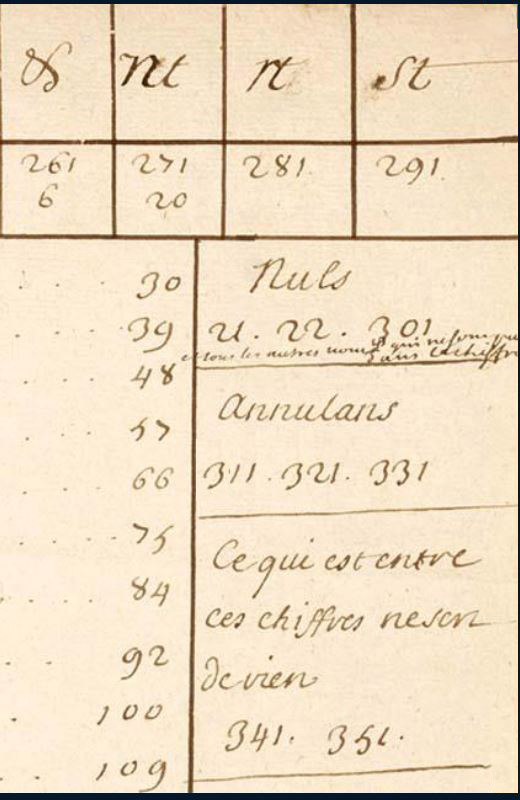 & nt rt st
261 271 281. 291.
6 20
30
39
48
57
66
75
84
92
100
109
Nuls
21. 22. 301
et tous les autres nomb qui ne sont pas
dans le chiffre
Annulans
311. 321. 331
Ce qui est entre
ces chiffres ne sert
de rien
341. 351.